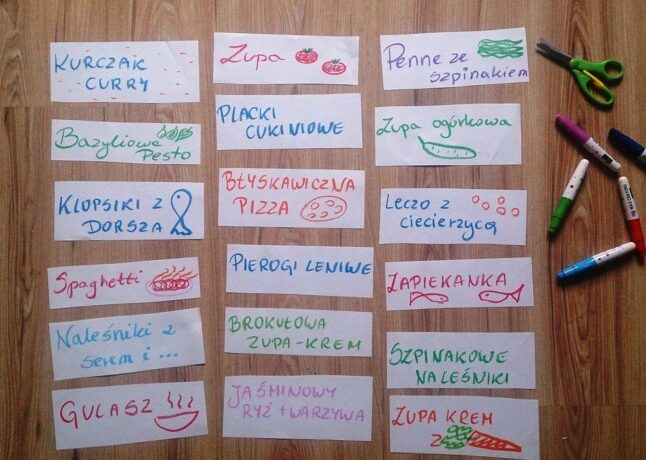 KURCZAK
CURRY
Bazyliowe
Pesto
KLOPSIKI Z
DORSZA
Spaghetti
Naleśniki z
serem i ...
GULASZ
Zupa
PLACKI
CUKINIOWE
BŁYSKAWICZNA
PIZZA
PIEROGI LENIWE
BROKUŁOWA
ZUPA-KREM
JAŚMINOWY
RYŻ + WARZYWA
Penne ze
szpinakiem
Zupa ogórkowa
Leczo z
ciecierzycą
ZAPIEKANKA
SZPINAKOWE
NALEŚNIKI
ZUPA KREM
Z